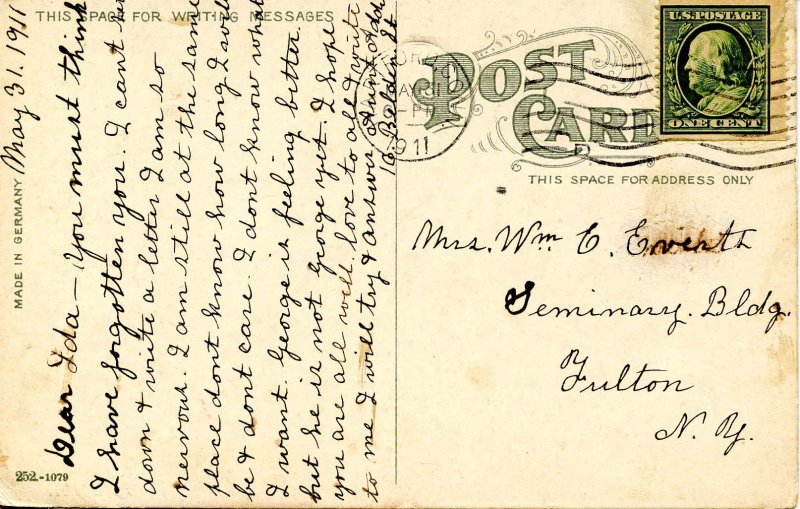 THIS SPACE FOR WRITING MESSAGES
May 31. 1911
MADE IN GERMANY
252.-1079
Dear Ida— You must think
I have forgotten you. I cant
down & write a letter I am so
nervous. I am still at the same
place dont know how long I will
be & dont care. I dont know what
I want. George is feeling better.
but he is not George yet. I hope
you are all well love to all & write
to me I will try & answer Aunt
16 Belden St
POST CARD
1911
U.S. POSTAGE
ONE CENT
THIS SPACE FOR ADDRESS ONLY
Mrs. Wm E. Everth
Seminary. Bldg.
Fulton
N. Y.